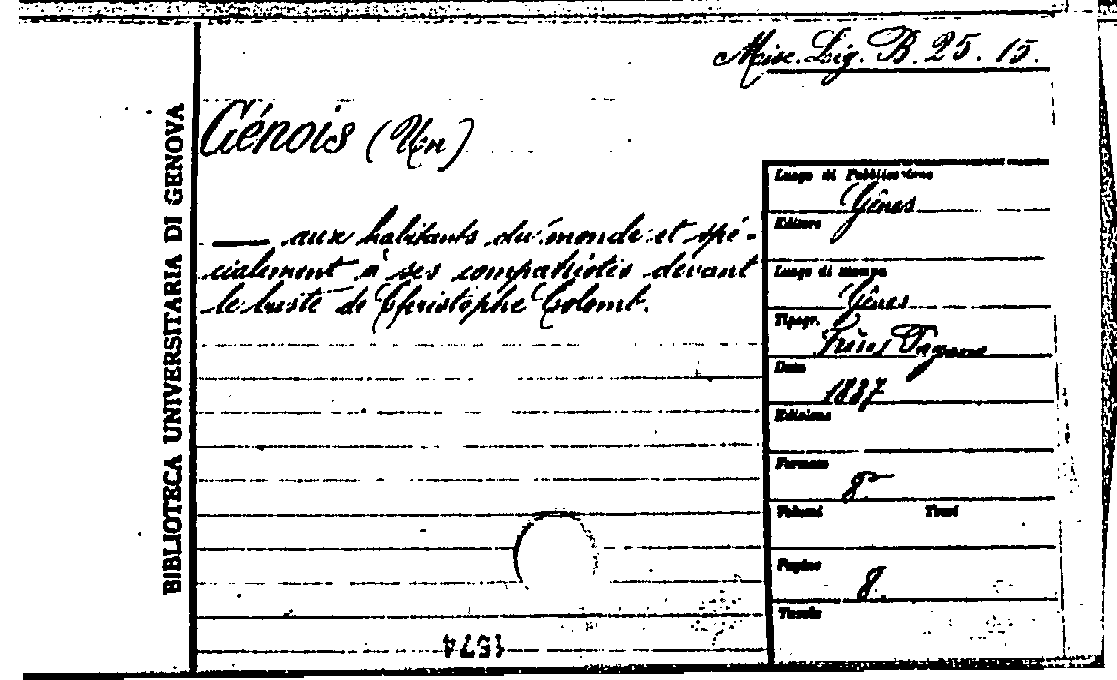 Misc. Lig. B. 25. 15.
Génois (Un)
— aux habitants du monde et spé-
cialement à ses compatriotes devant
le buste de Christophe Colomb.
BIBLIOTECA UNIVERSITARIA DI GENOVA
Luogo di Pubblicazione
Gênes
Editore
Luogo di stampa
Gênes
Tipogr.
Frères Pagano
Data
1837
Edizione
Formato
8°
Volumi Tomi
Pagine
8.
Tavole
1574